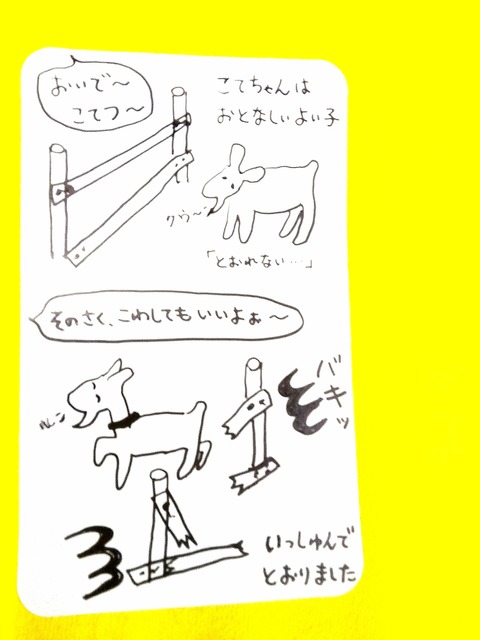 おいで～
こてつ～
こてちゃんは
おとなしいよい子
クゥ～
「とおれない…」
そのさく、こわしてもいいよぉ～
バキッ
いっしゅんで
とおりました